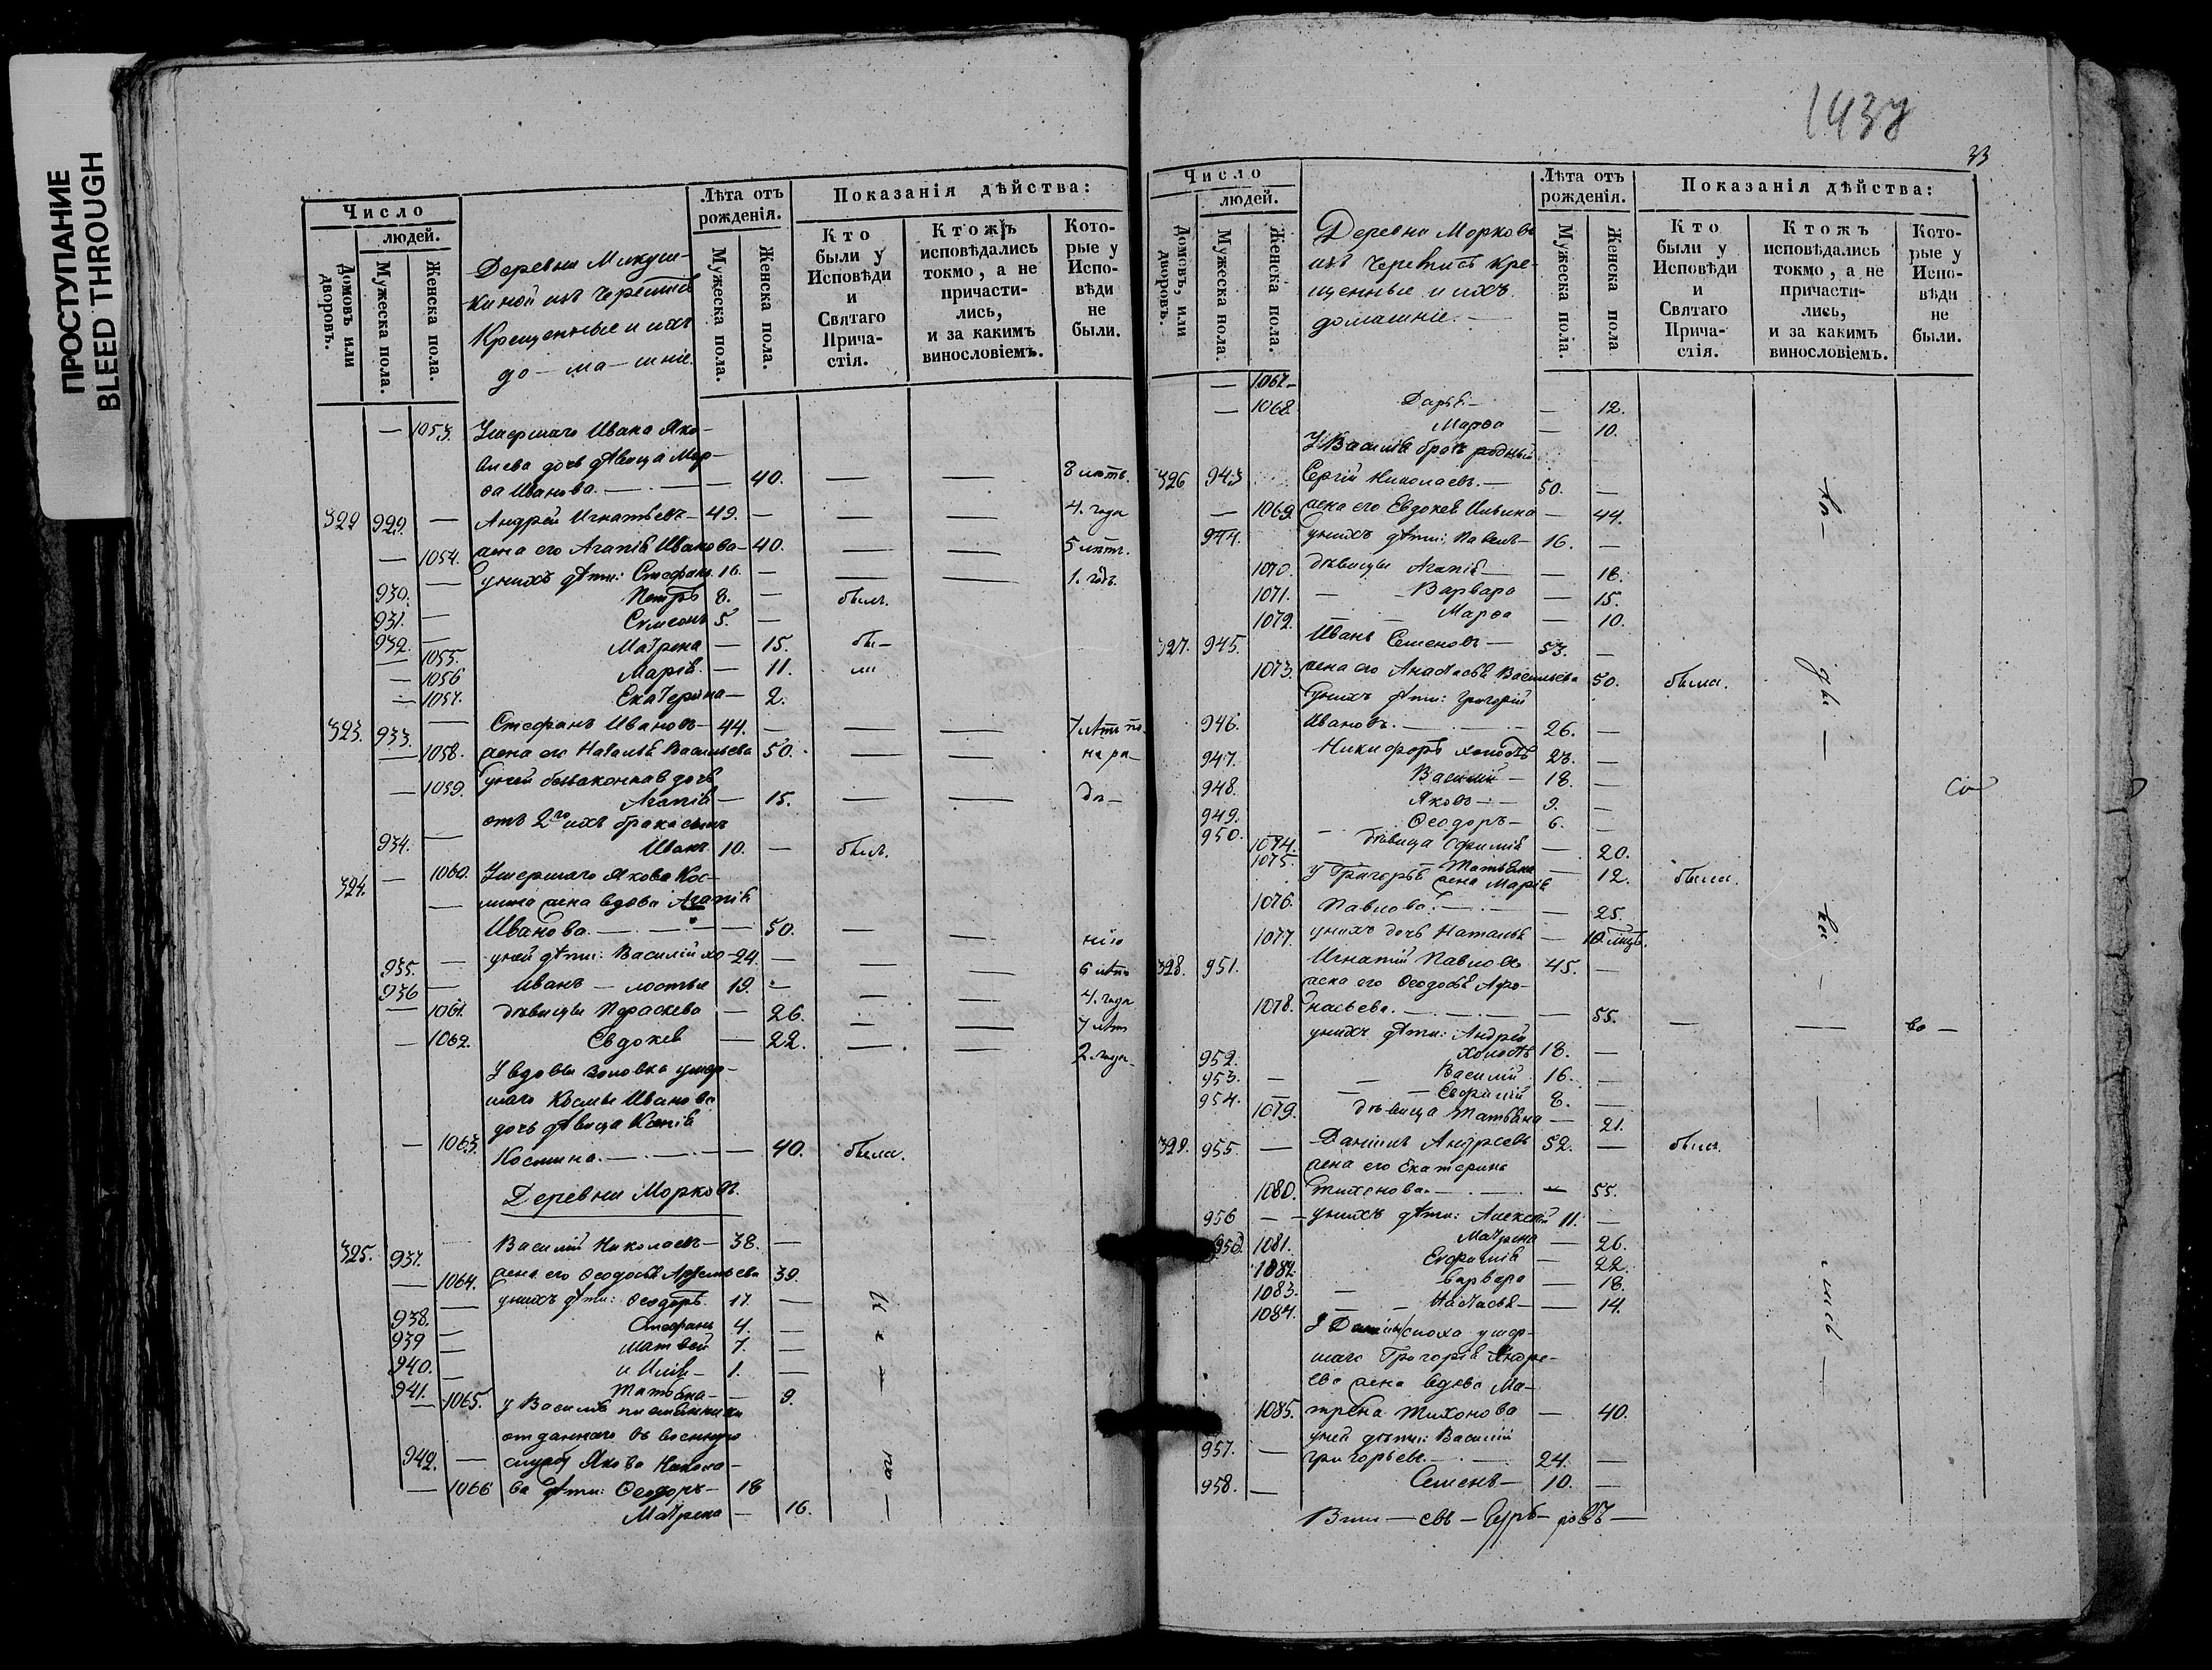 ПРОСТУПАНИЕ
BLEED THROUGH
Число
людей.
Домовъ или дворовъ.
Мужеска пола.
Женска пола.
Деревни Микуш-
киной изъ Черемисъ
Крещенные и ихъ
до - ма - шніе.
Лѣта отъ рожденія.
Мужеска пола.
Женска пола.
Показанія дѣйства:
Кто были у Исповѣди и Святаго Причастія.
Ктожъ исповѣдались токмо, а не причастились, и за какимъ винословіемъ.
Которые у Исповѣди не были.
— 1053. Умершаго Ивана Яко-
влева дочь дѣвица Мар-
ѳа Иванова. — 40. — — 8 лѣтъ.
322 929. — Андрей Игнатьевъ — 49. — — — 4. года
— 1054. жена его Агапія Иванова — 40. — — 5 лѣтъ.
930. — у нихъ дѣти: Стефанъ 16. — — — 1. годъ.
931. — Петръ 8. — былъ.
932. — Симеонъ 5. —
— 1055. Матрена — 15. бы-
— 1056 Марія. — 11. ли
— 1057. Екатерина — 2.
323. 933. — Стефанъ Ивановъ — 44. — — — 7 лѣтъ по
— 1058. жена его Наталія Васильева 50. — — нера-
— 1059. у ней беззаконная дочь
Агапія — 15. — — дѣ-
934. — отъ 2го ихъ брака сынъ
Иванъ 10. — былъ.
324. — 1060. Умершаго Якова Кос-
мина жена вдова Агапія
Иванова. — 50. — — нію
935. — у ней дѣти: Василій хо- 24. — — — 6 лѣтъ
936 — Иванъ — лостые 19. — — — 4. года
— 1061. дѣвицы Параскева — 26. — — 7 лѣтъ
— 1062. Евдокея — 22. — — 2. года
У вдовы золовка умер-
шаго Космы Иванова
дочь дѣвица Ксенія
— 1063. Космина. — 40. была.
Деревни Морковъ.
325. 937. Василій Николаевъ — 38. —
— 1064. жена его Ѳеодосья Артемьева 39.
938. — у нихъ дѣти: Ѳеодоръ. 17. —
939 — Стефанъ 4. —
940. — Матвей 7. —
941. — и Илія — 1. —
— 1065. Татьяна — — 9.
у Василія племянники
отданнаго въ военную
942. — службу Якова Никола-
— 1066 ва дѣти: Ѳеодоръ — 18
Матрена — 16.
1437
33
Число
людей.
Домовъ, или дворовъ.
Мужеска пола.
Женска пола.
Деревни Морковъ
изъ Черемисъ кре-
щенные и ихъ
домашніе. —
Лѣта отъ рожденія.
Мужеска пола.
Женска пола
Показанія дѣйства:
Кто были у Исповѣди и Святаго Причастія.
Ктожъ исповѣдались токмо, а не причастились, и за какимъ винословіемъ.
Которые у Исповѣди не были.
— 1067 —
— 1068. Дарья — — 12.
Марѳа — 10.
У Василія братъ родный
326 943 Сергій Николаевъ. — 50. —
— 1069 жена его Евдокея Ильина — 44.
944. у нихъ дѣти: Павелъ — 16. —
1070. дѣвицы Агапія — — 18.
1071. — Варвара — 15.
1072. — — Марѳа — 10.
327. 945. Иванъ Семеновъ — 53. —
1073. жена его Анастасія Васильева 50. была.
у нихъ дѣти: Григорій
946. Ивановъ. — 26. —
947. Никифоръ холостъ 23. —
948. Василій — 18. —
949. Яковъ — 9. —
950. Ѳеодоръ — 6. —
1074. дѣвица Ефимія — 20.
1075. Татьяна — 12. была.
у Григорья жена Марія
1076. Павлова. — — 25.
1077. у нихъ дочь Наталья — 10. мѣсяц.
328. 951. Игнатій Павловъ 45. —
жена его Ѳеодосья Аѳо-
1078. насьева. — 55. — — во —
у нихъ дѣти: Андрей
952. холостъ 18. —
953. — — Василій 16. —
954. — Евфимій 8. —
1079. дѣвица Татьяна — 21.
329. 955. — Даніилъ Андреевъ 52. — былъ.
жена его Екатерина
1080. Тихонова. — — 55.
956 — у нихъ дѣти: Алексѣй 11. —
956. 1081. Матрена — 26.
1082. Евфимія — 22
1083. — Варвара — 18.
1084. — Настасья — — 14.
У Даніилы сноха умер-
шаго Григорія Андре-
ева жена вдова Ма-
1085. трена Тихонова — 40.
у ней дѣти: Василій
957. — Григорьевъ. — 24. —
958. — Семенъ — 10. —